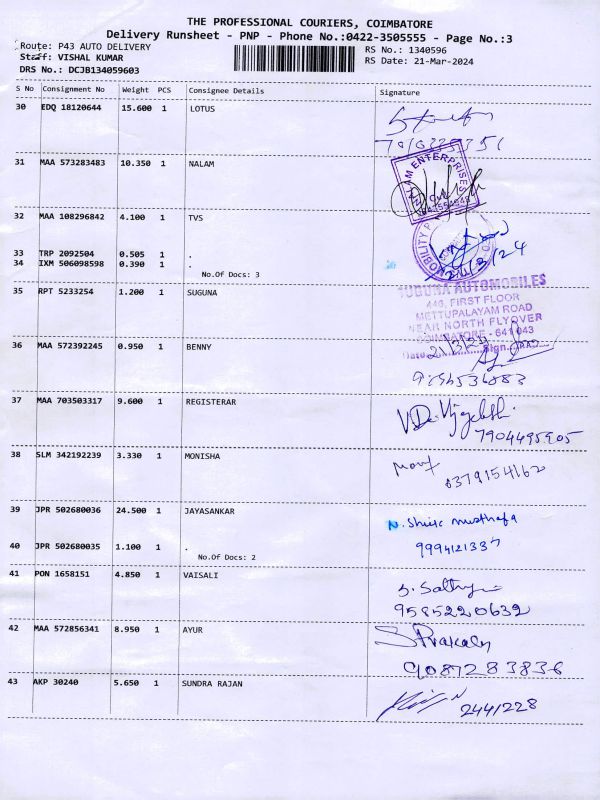 THE PROFESSIONAL COURIERS, COIMBATORE
Delivery Runsheet - PNP - Phone No.:0422-3505555 - Page No.:3
Route: P43 AUTO DELIVERY
RS No.: 1340596
Staff: VISHAL KUMAR
RS Date: 21-Mar-2024
DRS No.: DCJB134059603
S No Consignment No Weight PCS Consignee Details Signature
30 EDQ 18120644 15.600 1 LOTUS
31 MAA 573283483 10.350 1 NALAM
NALAM ENTERPRISES
32 MAA 108296842 4.100 1 TVS
MOBILITY
21/3/24
33 TRP 2092504 0.505 1 .
34 IXM 506098598 0.390 1 .
No.Of Docs: 3
35 RPT 5233254 1.200 1 SUGUNA
SUGUNA AUTOMOBILES
446, FIRST FLOOR
METTUPALAYAM ROAD
NEAR NORTH FLYOVER
COIMBATORE - 641 043
Date 21/3/24 Sign
36 MAA 572392245 0.950 1 BENNY
37 MAA 703503317 9.600 1 REGISTERAR
7904495905
38 SLM 342192239 3.330 1 MONISHA
6379154162
39 JPR 502680036 24.500 1 JAYASANKAR
N. musthafa
9994121337
40 JPR 502680035 1.100 1 .
No.Of Docs: 2
41 PON 1658151 4.850 1 VAISALI
9585220632
42 MAA 572856341 8.950 1 AYUR
9087283836
43 AKP 30240 5.650 1 SUNDRA RAJAN
2441228